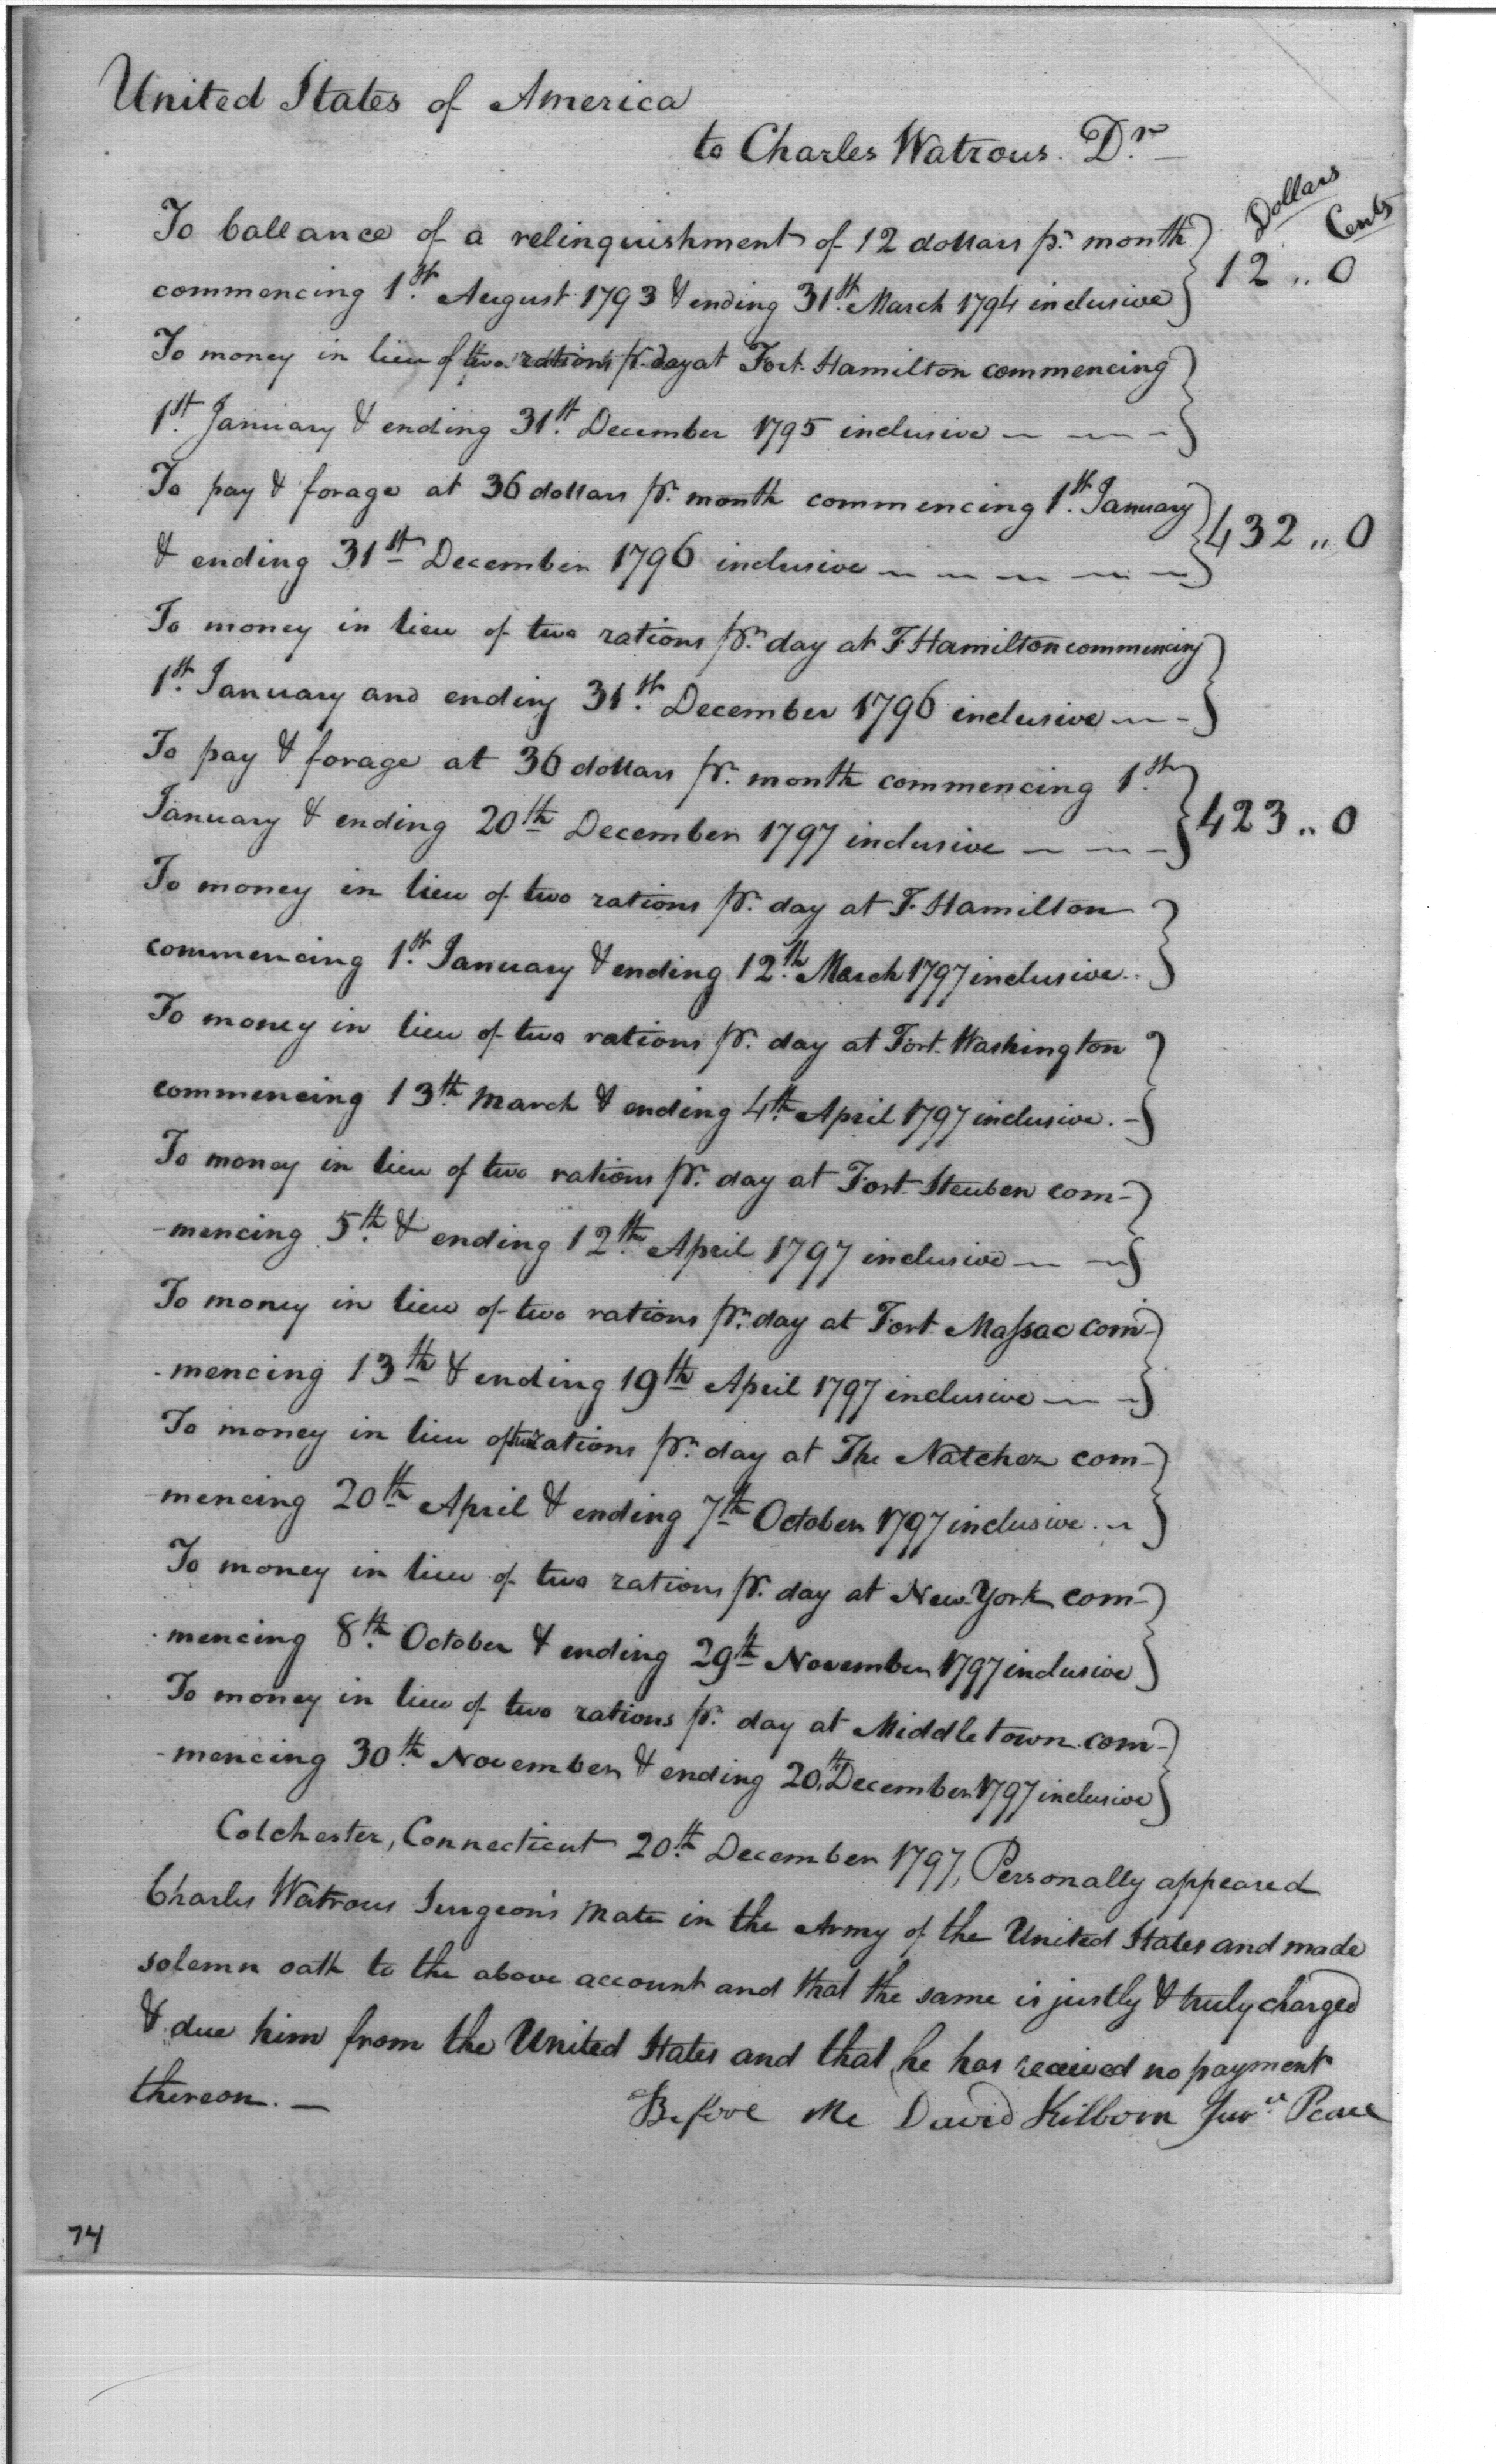 United States of America
to Charles Watrous. Dr
Dollars Cents
To ballance of a relinquishment of 12 dollars pr. month
commencing 1st. August 1793 & ending 31st. March 1794 inclusive 12 .. 0
To money in lieu of two rations pr. day at Fort Hamilton commencing
1st. January & ending 31st. December 1795 inclusive
To pay & forage at 36 dollars pr. month commencing 1st. January
& ending 31st December 1796 inclusive 432 .. 0
To money in lieu of two rations pr. day at F. Hamilton commencing
1st. January and ending 31st. December 1796 inclusive
To pay & forage at 36 dollars pr. month commencing 1st.
January & ending 20th December 1797 inclusive 423 .. 0
To money in lieu of two rations pr. day at F. Hamilton
commencing 1st. January & ending 12th. March 1797 inclusive..
To money in lieu of two rations pr. day at Fort Washington
commencing 13th. March & ending 4th. April 1797 inclusive.
To money in lieu of two rations pr. day at Fort Steuben com-
-mencing 5th. & ending 12th. April 1797 inclusive
To money in lieu of two rations pr. day at Fort Maſsac com-
-mencing 13th & ending 19th April 1797 inclusive
To money in lieu of two rations pr. day at The Natchez com-
-mencing 20th April & ending 7th October 1797 inclusive.
To money in lieu of two rations pr. day at New York com-
-mencing 8th. October & ending 29th November 1797 inclusive
To money in lieu of two rations pr. day at Middletown com-
-mencing 30th. November & ending 20th. December 1797 inclusive
Colchester, Connecticut 20th. December 1797, Personally appeared
Charles Watrous Surgeon's Mate in the Army of the United States and made
solemn oath to the above account and that the same is justly & truly charged
& due him from the United States and that he has received no payment
thereon. —
Before Me David Kilborn Jusce Peace
74